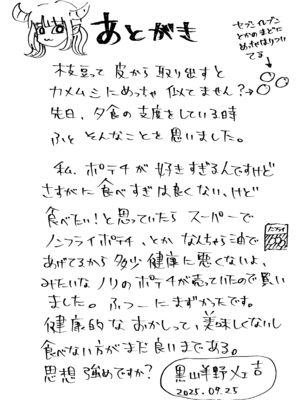 あとがき
セブンイレブン
とかのまどに
めっちゃはりつい
てる
枝豆って皮から取り出すと
カメムシにめっちゃ似てません?→
先日、夕食の支度をしている時
ふと そんなことを思いました。
私、ポテチが好きすぎるんですけど
さすがに食べすぎは良くない、けど
食べたい!と思っていたら スーパーで
ノンフライポテチ、とか なんちゃら油で
あげてるから多少健康に悪くないよ、
みたいなノリのポテチが売っていたので買い
ました。ふつーにまずかったです。
健康的なおかしって、美味しくないし
食べない方がまだ良いまである。
思想強めですか?
ノンフライ
黒山羊野メェ吉
2025.09.25